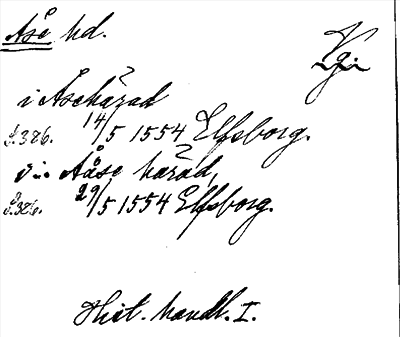 Åse hd.
Vg.
i Åsehärad
s. 386. 14/5 1554 Elfsborg.
i Ååse häräd,
s. 386. 29/5 1554 Elfsborg.
Hist. handl. I.